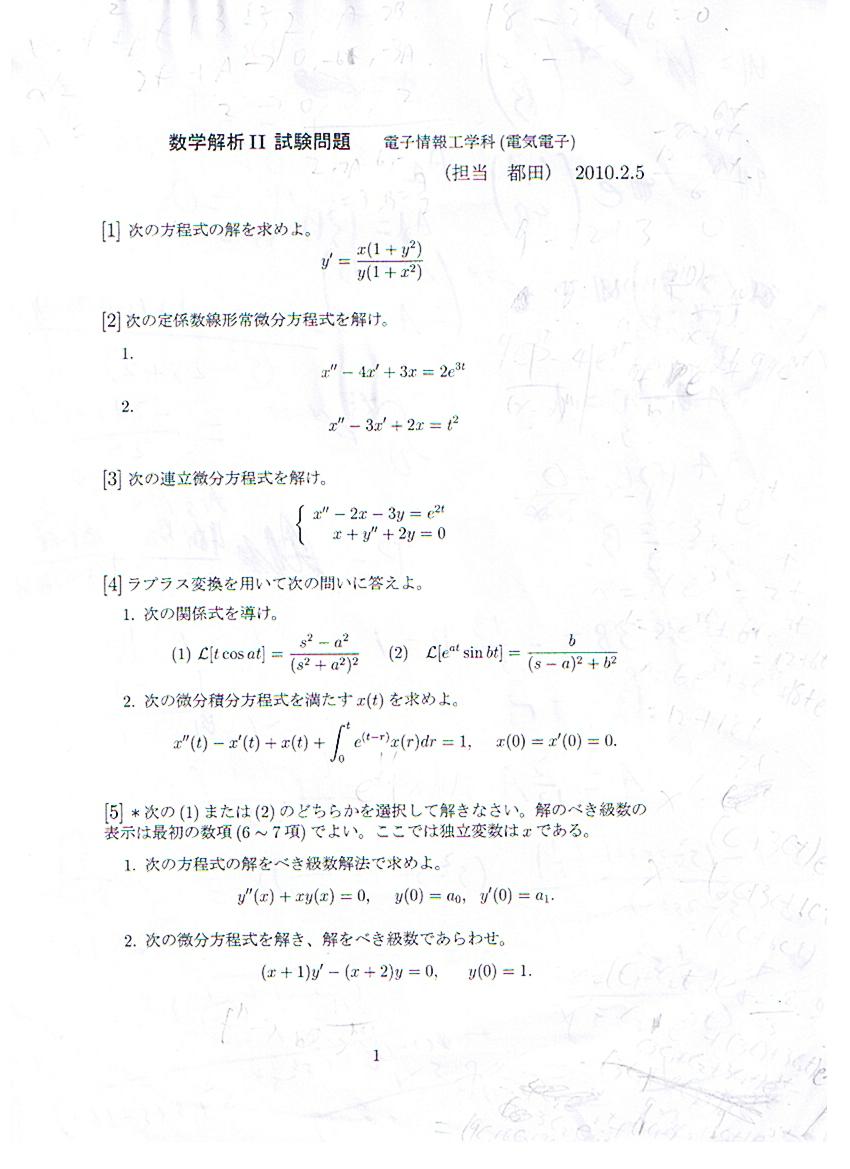 数学解析 II 試験問題　電子情報工学科 (電気電子)
(担当　都田)　2010.2.5
[1] 次の方程式の解を求めよ。
y′ = x(1 + y²) / y(1 + x²)
[2] 次の定係数線形常微分方程式を解け。
1.
x″ − 4x′ + 3x = 2e^{3t}
2.
x″ − 3x′ + 2x = t²
[3] 次の連立微分方程式を解け。
{ x″ − 2x − 3y = e^{2t}
x + y″ + 2y = 0
[4] ラプラス変換を用いて次の問いに答えよ。
1. 次の関係式を導け。
(1) ℒ[t cos at] = (s² − a²) / (s² + a²)²　(2) ℒ[e^{at} sin bt] = b / ((s − a)² + b²)
2. 次の微分積分方程式を満たす x(t) を求めよ。
x″(t) − x′(t) + x(t) + ∫₀ᵗ e^{(t−r)}x(r)dr = 1,　x(0) = x′(0) = 0.
[5] ∗次の (1) または (2) のどちらかを選択して解きなさい。解のべき級数の
表示は最初の数項 (6 ～ 7 項) でよい。ここでは独立変数は x である。
1. 次の方程式の解をべき級数解法で求めよ。
y″(x) + xy(x) = 0,　y(0) = a₀,　y′(0) = a₁.
2. 次の微分方程式を解き、解をべき級数であらわせ。
(x + 1)y′ − (x + 2)y = 0,　y(0) = 1.
1